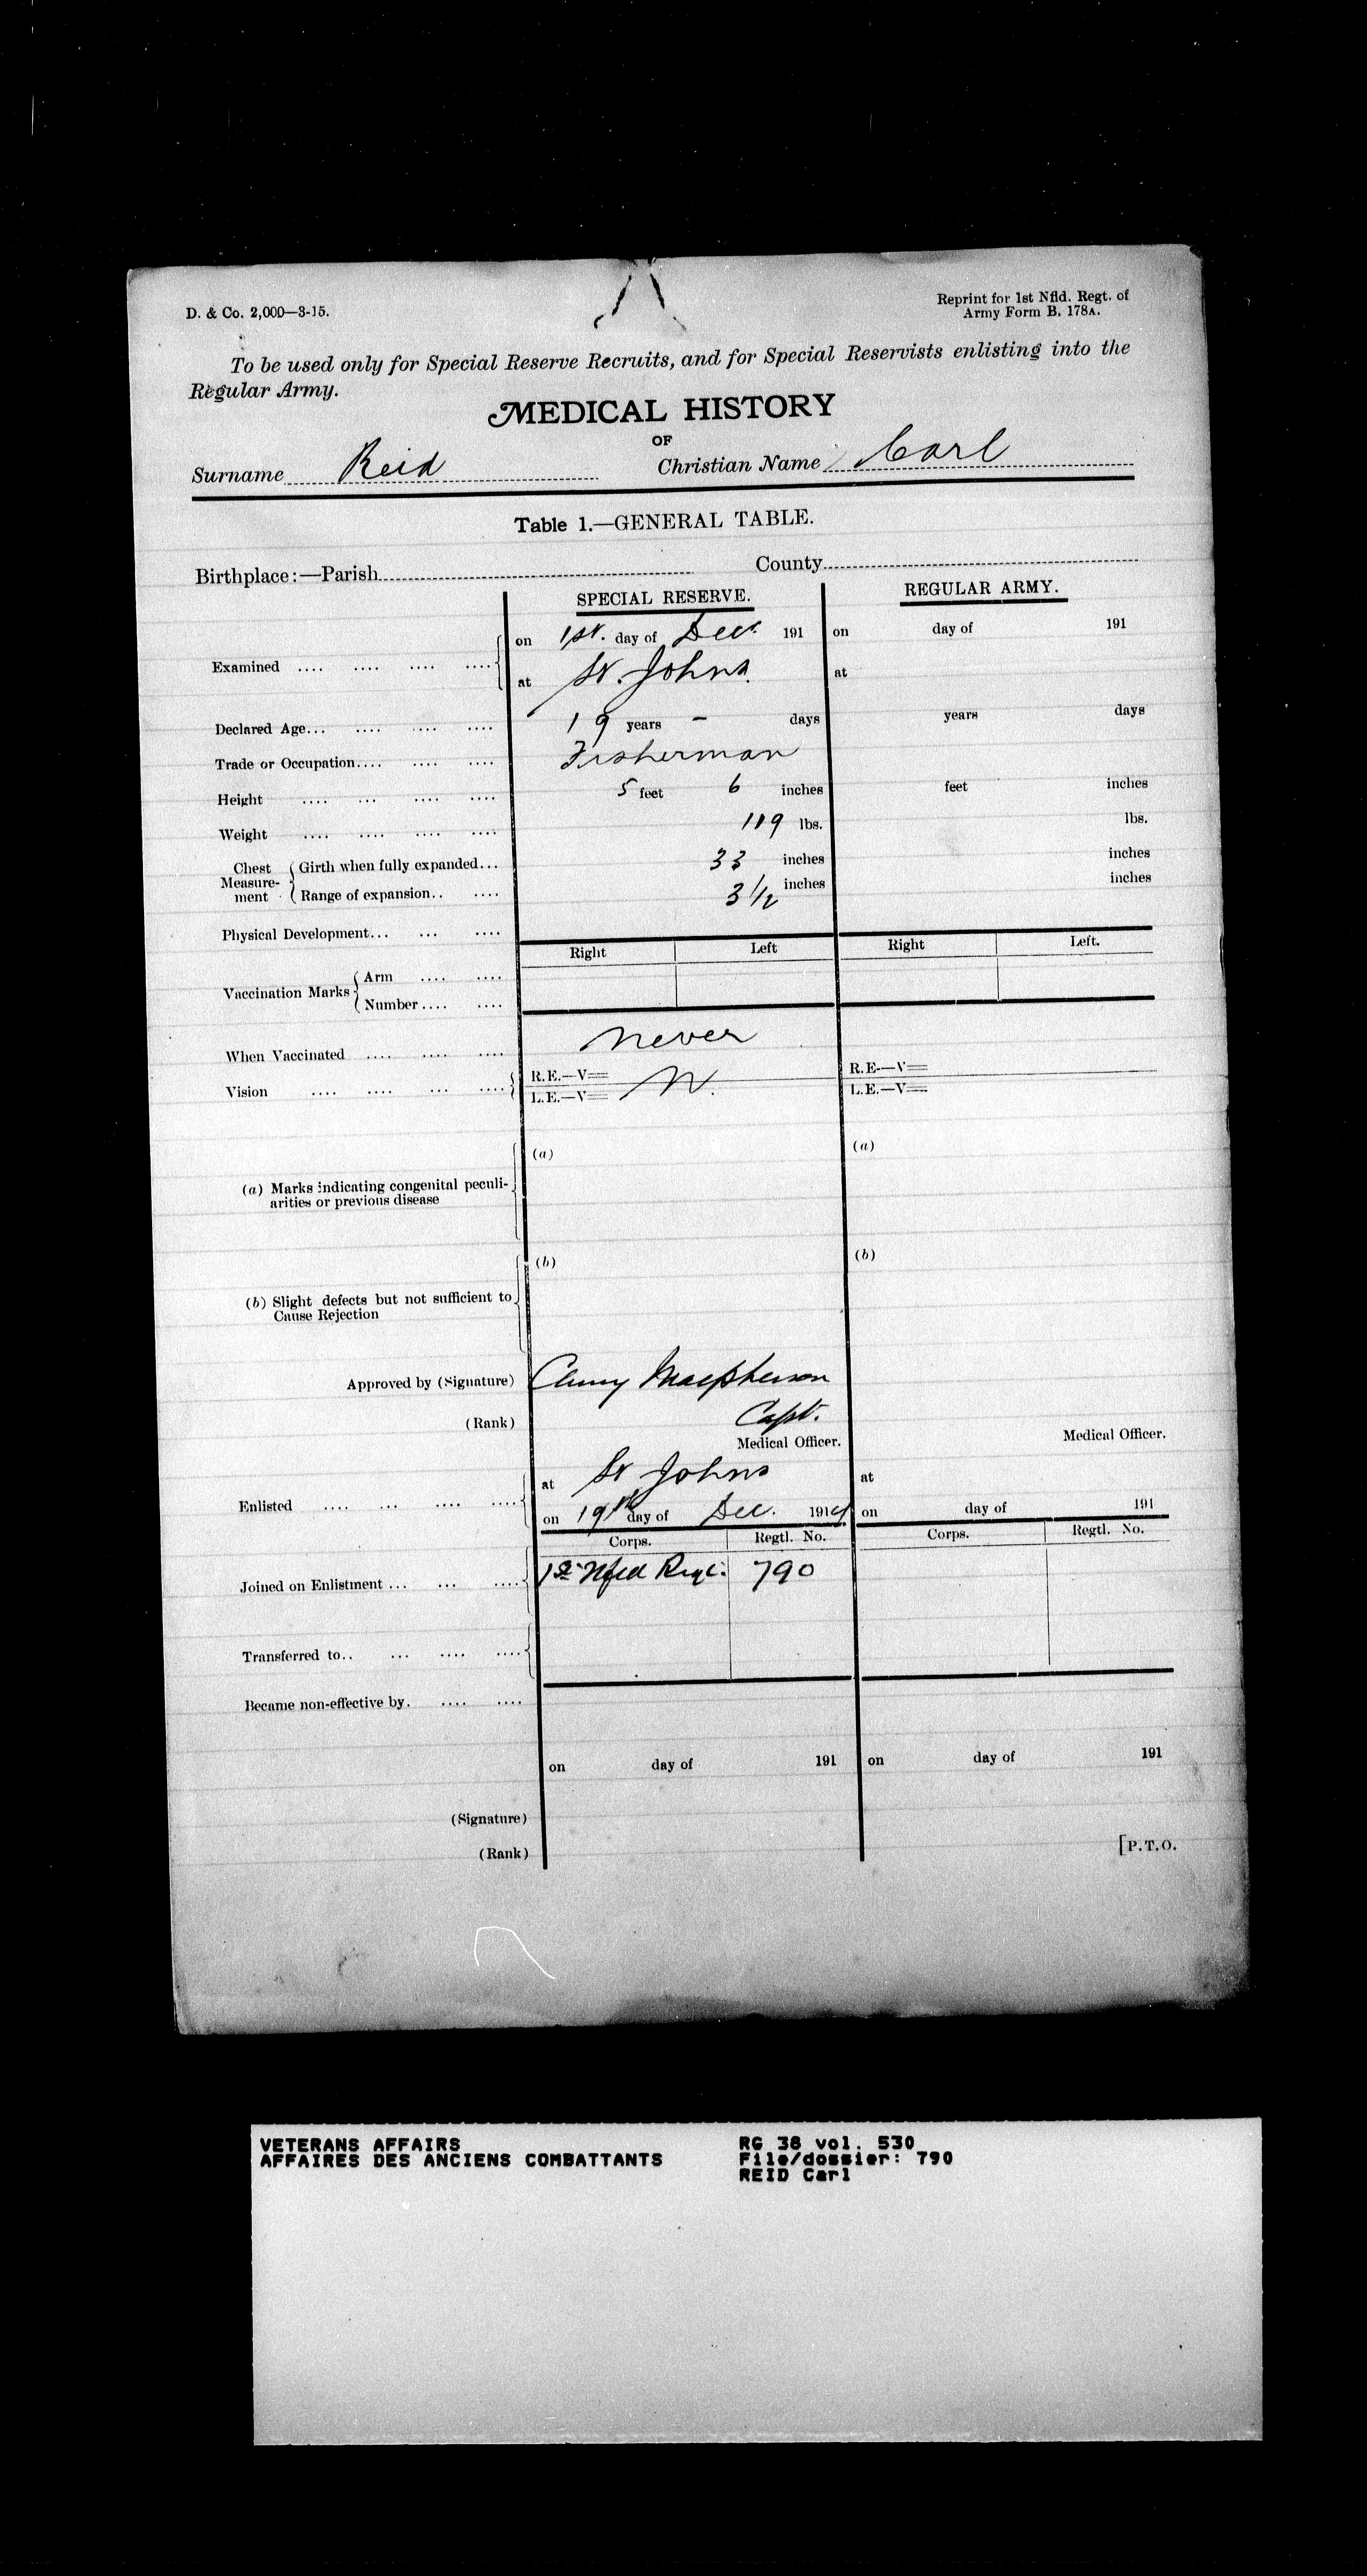 D. & Co. 2,000—3-15.
Reprint for 1st Nfld. Regt. of
Army Form B. 178A.
To be used only for Special Reserve Recruits, and for Special Reservists enlisting into the
Regular Army.
MEDICAL HISTORY
OF
Surname Reid Christian Name Carl
Table 1.—GENERAL TABLE.
Birthplace:—Parish County
SPECIAL RESERVE. REGULAR ARMY.
Examined .... .... .... ....
on 1st. day of Dec. 191 on day of 191
at St. Johns. at
Declared Age... .... .... .... 19 years - days years days
Trade or Occupation.... .... .... Fisherman
Height .... ... .... .... 5 feet 6 inches feet inches
Weight .... .... .... .... 119 lbs. lbs.
Chest Measure- ment
Girth when fully expanded... 33 inches inches
Range of expansion.. .... 3 1/2 inches inches
Physical Development... ... ....
Right Left Right Left.
Vaccination Marks
Arm .... ....
Number .... ....
When Vaccinated .... .... .... never
Vision .... .... ... ....
R.E.—V= N. R.E.—V=
L.E.—V= L.E.—V=
(a) (a)
(a) Marks indicating congenital peculi-
arities or previous disease
(b) (b)
(b) Slight defects but not sufficient to
Cause Rejection
Approved by (Signature) Cluny Macpherson
(Rank) Capt.
Medical Officer. Medical Officer.
Enlisted .... ... .... ....
at St Johns at
on 19th day of Dec. 1914 on day of 191
Corps. Regtl. No. Corps. Regtl. No.
Joined on Enlistment ... ... .... 1st Nfld Regt. 790
Transferred to.. ... .... ....
Became non-effective by. .... ....
on day of 191 on day of 191
(Signature)
(Rank)
[P.T.O.
VETERANS AFFAIRS RG 38 vol. 530
AFFAIRES DES ANCIENS COMBATTANTS File/dossier: 790
REID Carl